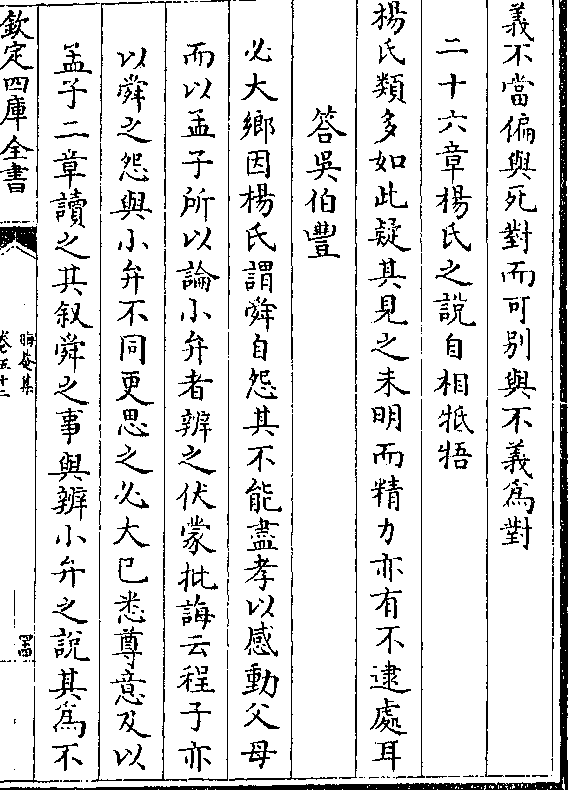 義不當偏與死對而可别與不義爲對
二十六章楊氏之說自相牴牾
楊氏類多如此疑其見之未明而精力亦有不逮處耳
答吳伯豐
必大鄉因楊氏謂舜自怨其不能盡孝以感動父母
而以孟子所以論小弁者辨之伏蒙批誨云程子亦
以舜之怨與小弁不同更思之必大已悉尊意及以
孟子二章讀之其叙舜之事與辨小弁之說其爲不
欽定四庫全書
晦菴集
卷五十二